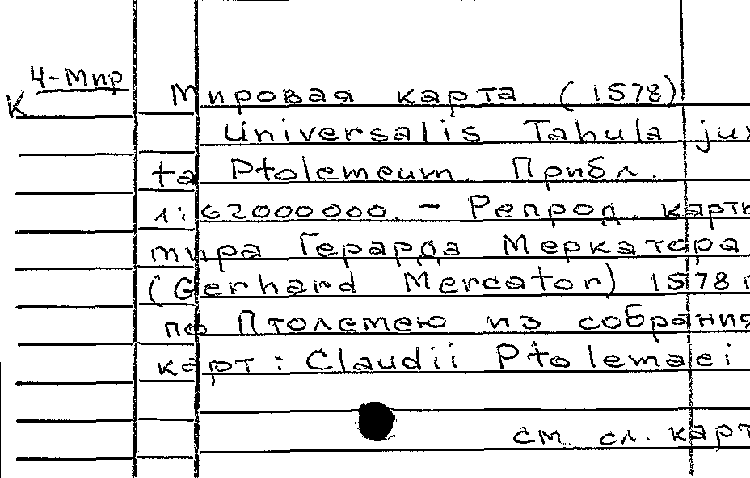 4-Мир
К
Мировая карта (1578)
Universalis Tahula jux
ta Ptolemeum. Прибл.
1:62000000. - Репрод. карты
мира Герарда Меркатора
(Gerhard Mercator) 1578 г
по Птолемею из собрания
карт: Claudii Ptolemaei
см. сл. карт